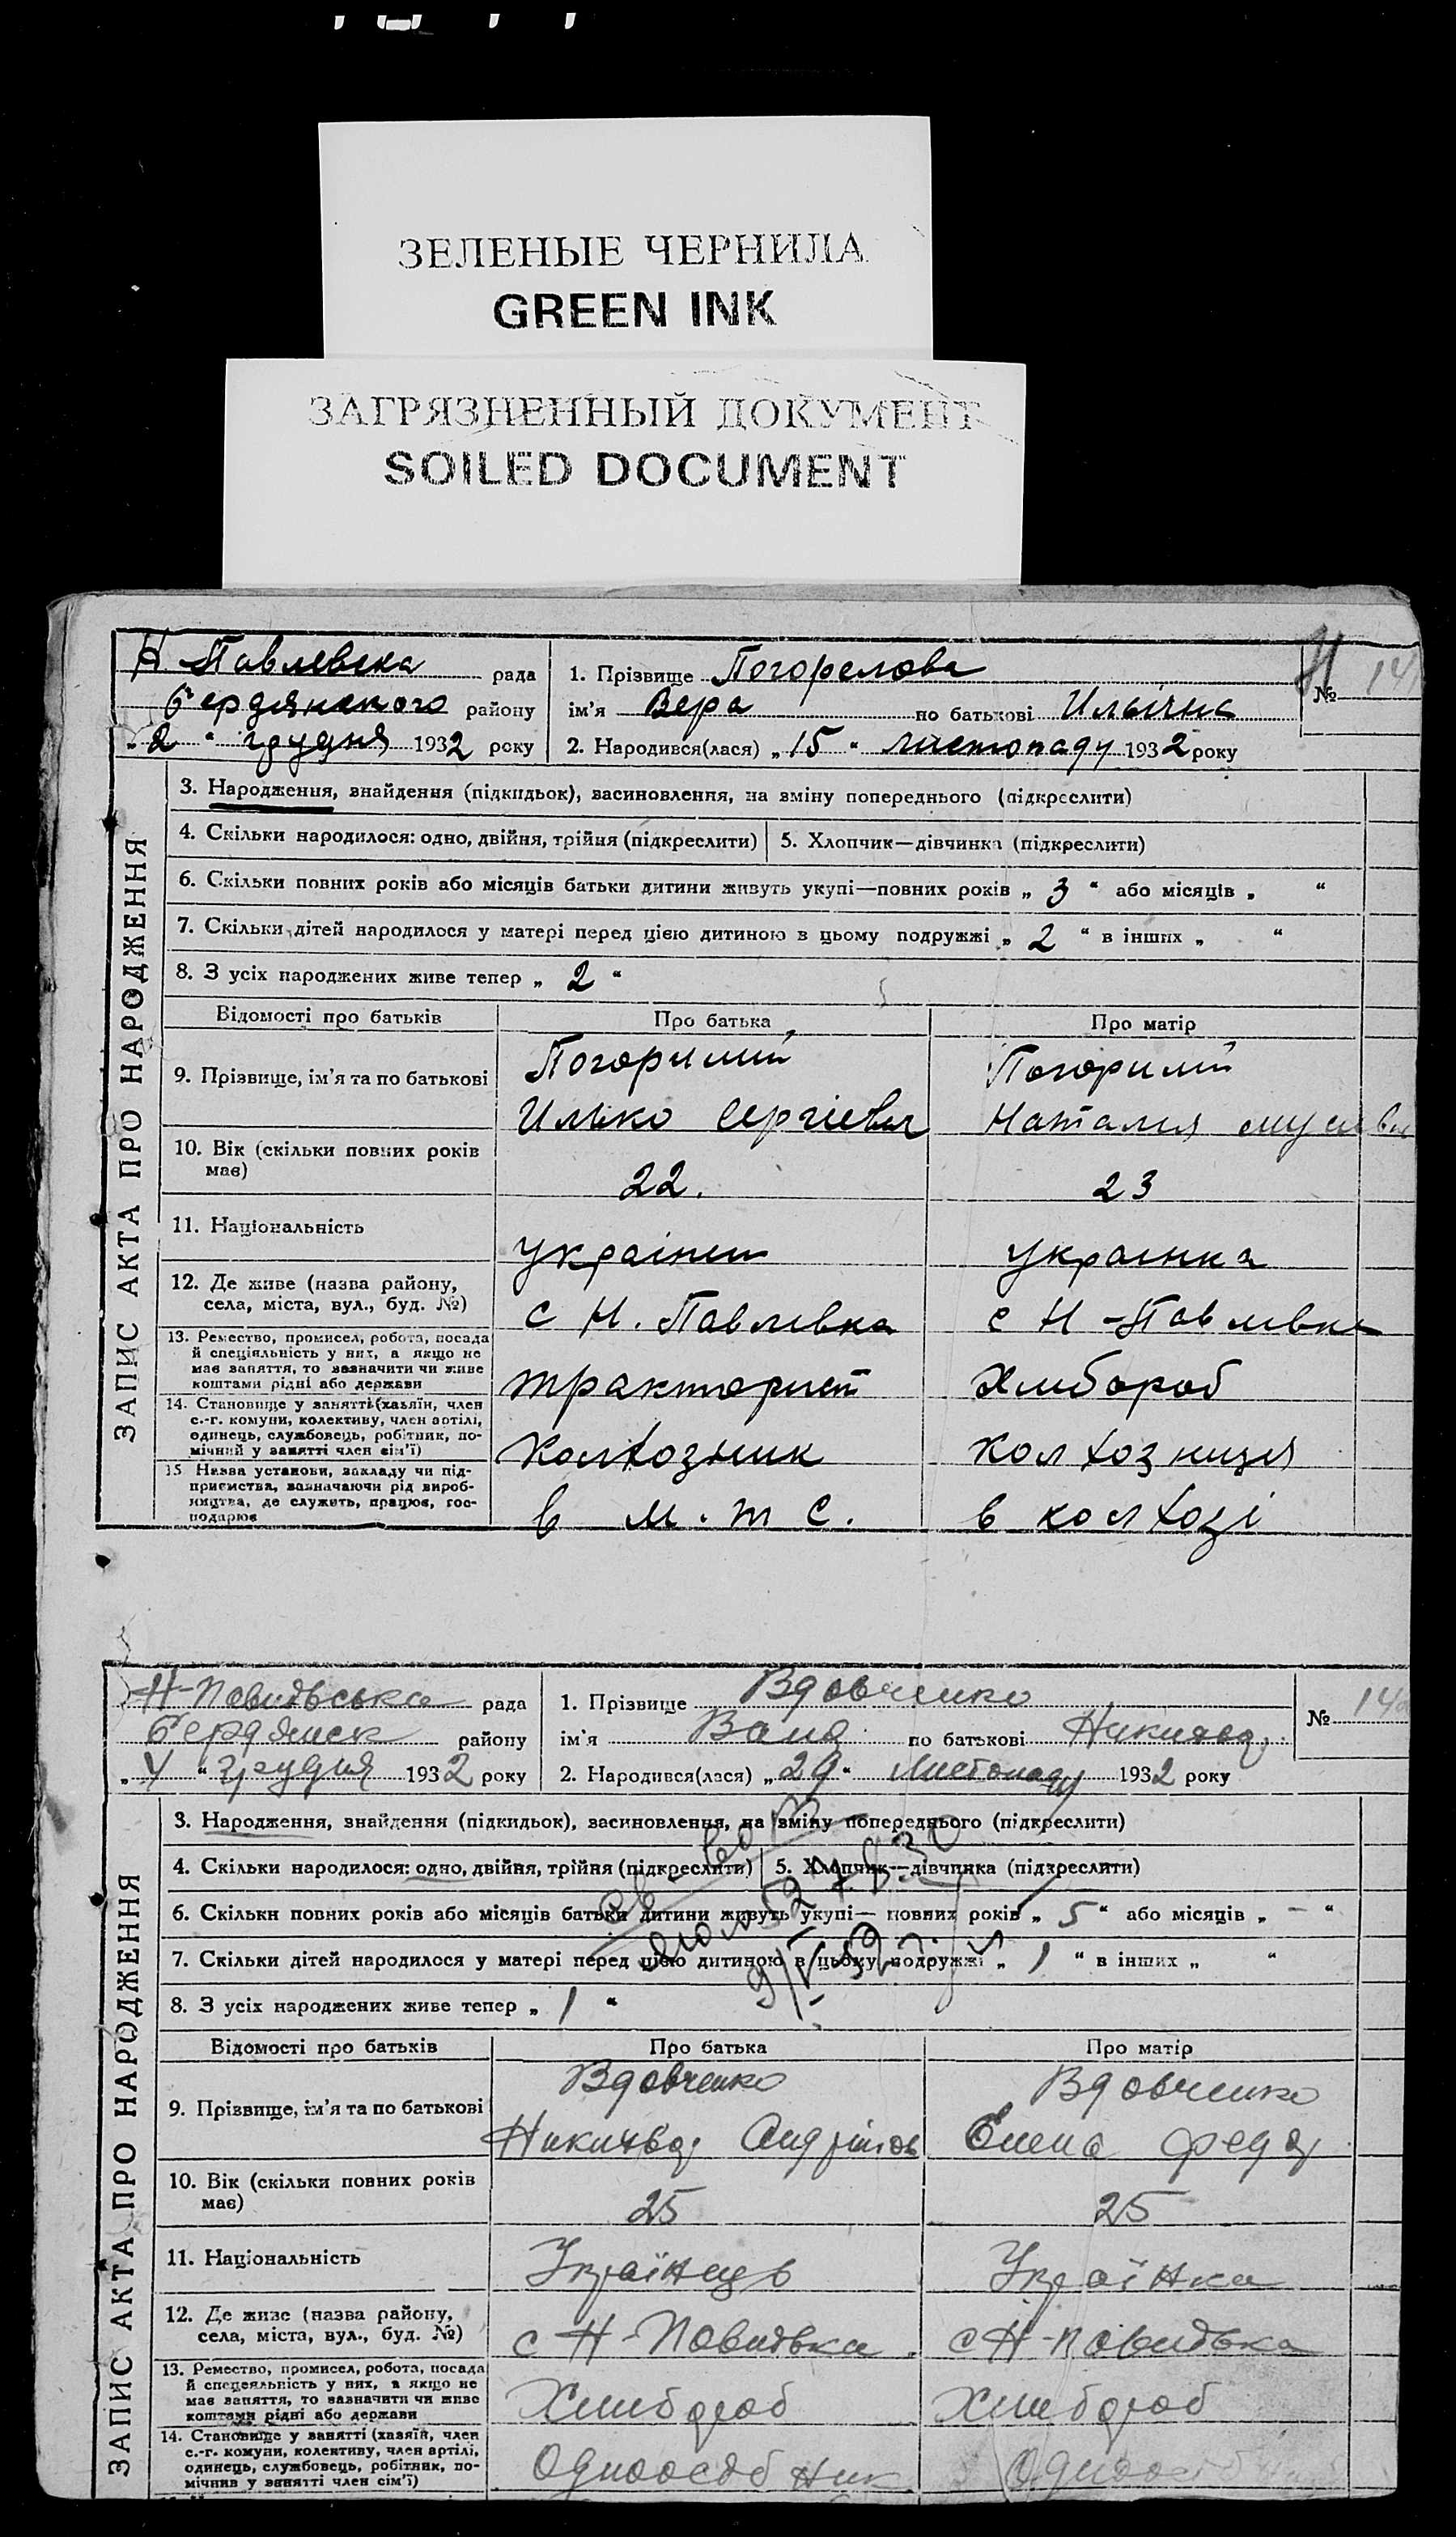 ЗЕЛЕНЫЕ ЧЕРНИЛА
GREEN INK
ЗАГРЯЗНЕННЫЙ ДОКУМЕНТ
SOILED DOCUMENT
Н. Павлевска рада
Бердянского району
„ 2 “ грудня 1932 року
1. Прізвище Погорелова
ім'я Вера по батькові Ильічна
2. Народився(лася) „ 15 “ листопаду 1932 року
№ 14
ЗАПИС АКТА ПРО НАРОДЖЕННЯ
3. Народження, знайдення (підкидьок), засиновлення, на зміну попереднього (підкреслити)
4. Скільки народилося: одно, двійня, трійня (підкреслити)
5. Хлопчик—дівчинка (підкреслити)
6. Скільки повних років або місяців батьки дитини живуть укупі—повних років „ 3 “ або місяців „ “
7. Скільки дітей народилося у матері перед цією дитиною в цьому подружжі „ 2 “ в інших „ “
8. З усіх народжених живе тепер „ 2 “
Відомості про батьків
Про батька
Про матір
9. Прізвище, ім'я та по батькові
Погорилий
Илько Сергієвич
Погорилий
Наталия
10. Вік (скільки повних років
має)
22.
23
11. Національність
українец
українка
12. Де живе (назва району,
села, міста, вул., буд. №)
с Н. Павлевка
с Н - Павлевка
13. Ремество, промисел, робота, посада
й спеціяльність у них, а якщо не
має заняття, то зазначити чи живе
коштами рідні або держави
тракторист
Хлибороб
14. Становище у занятті (хазяїн, член
с.-г. комуни, колективу, член артілі,
одинець, службовець, робітник, по-
мічний у занятті член сім'ї)
колхозник
колхозниця
15 Назва установи, закладу чи під-
приємства, зазначаючи рід вироб-
ництва, де служить, працює, гос-
подарює
в м. т с.
в колхозі
Н-Павлівська рада
Бердянск району
„ 4 “ грудня 1932 року
1. Прізвище Вдовченко
ім'я Ваня по батькові
2. Народився(лася) „ 29 “ Листопаду 1932 року
№ 14
ЗАПИС АКТА ПРО НАРОДЖЕННЯ
3. Народження, знайдення (підкидьок), засиновлення, на зміну попереднього (підкреслити)
4. Скільки народилося: одно, двійня, трійня (підкреслити)
5. Хлопчик—дівчинка (підкреслити)
6. Скільки повних років або місяців батьки дитини живуть укупі— повних років „ 5 “ або місяців „ – “
7. Скільки дітей народилося у матері перед цією дитиною в цьому подружжі „ 1 “ в інших „ “
8. З усіх народжених живе тепер „ 1 “
Відомості про батьків
Про батька
Про матір
9. Прізвище, ім'я та по батькові
Вдовченко
Вдовченко
Елена Федор
10. Вік (скільки повних років
має)
25
25
11. Національність
Українець
Українка
12. Де живе (назва району,
села, міста, вул., буд. №)
с Н-Павлівка
с Н-Павлівка
13. Ремество, промисел, робота, посада
й спецеяльність у них, а якщо не
має заняття, то зазначити чи живе
коштами рідні або держави
Хлибороб
Хлибороб
14. Становище у занятті (хазяїн, член
с.-г. комуни, колективу, член артілі,
одинець, службовець, робітник, по-
мічний у занятті член сім'ї)
Одноосібник